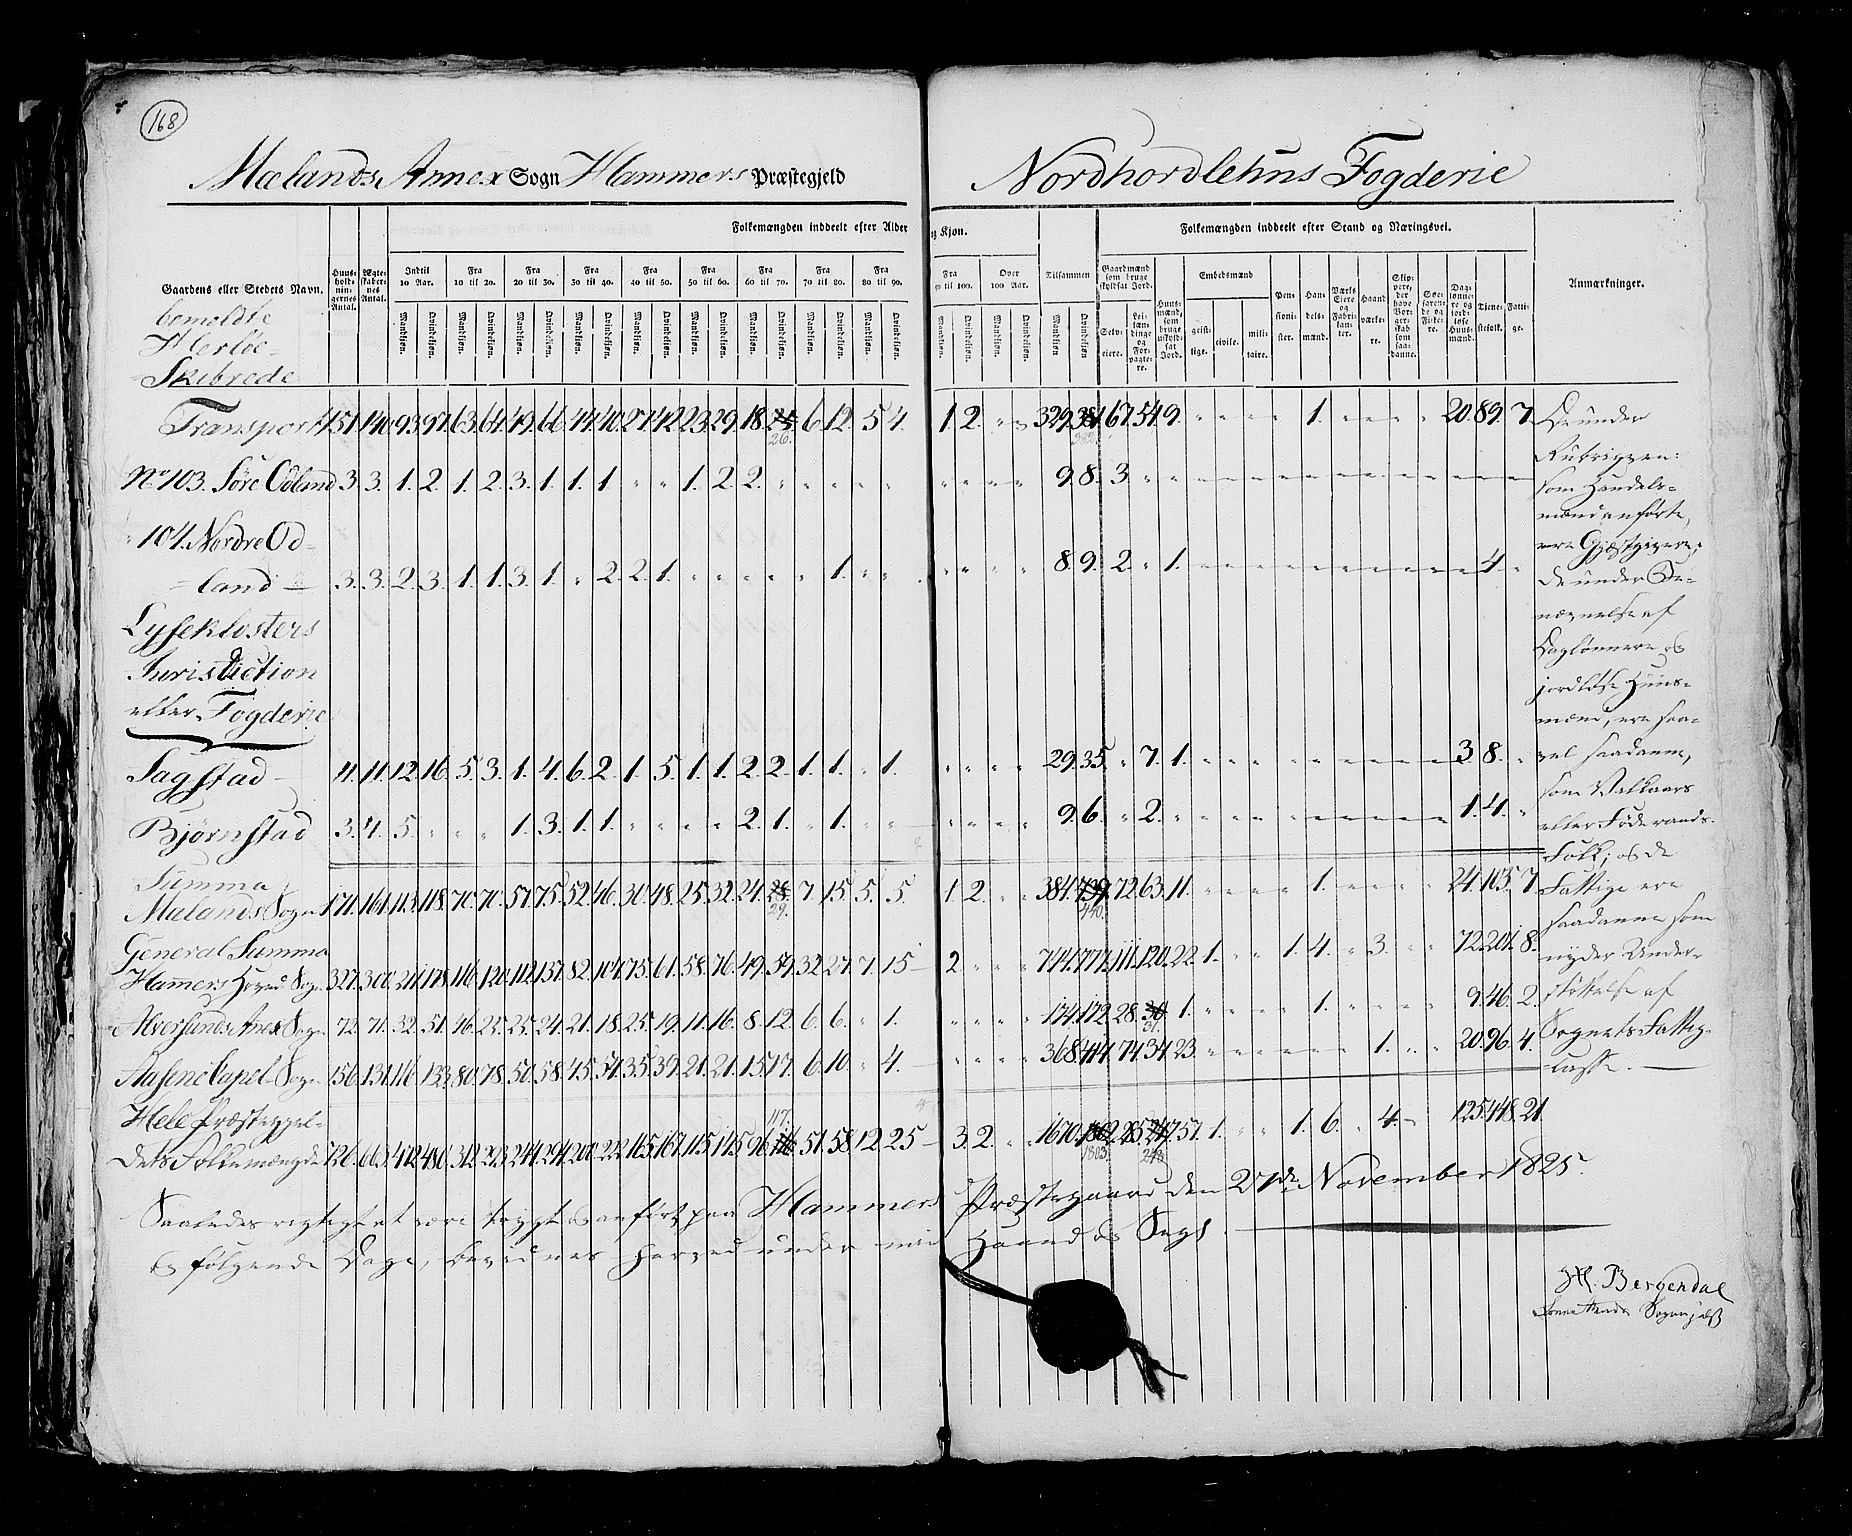 168
Mælands Annex Sogn Hammers Præstegjeld
Nordhordlehns Fogderie
Folkemængden inddeelt efter Alder og Kjøn.
Folkemængden inddeelt efter Stand og Næringsvei.
Gaardens eller Stedets Navn.
Huusholdningernes Antal.
Ægteskabernes Antal.
Indtil 10 Aar.
Fra 10 til 20.
Fra 20 til 30.
Fra 30 til 40.
Fra 40 til 50.
Fra 50 til 60.
Fra 60 til 70.
Fra 70 til 80.
Fra 80 til 90.
Fra til 100.
Over 100 Aar.
Tilsammen
Mandkjøn. Qvindekjøn.
Gaardmænd som bruge skyldsat Jord.
Selveiere.
Leilændinge og Forpagtere.
Huusmænd, som bruge uskyldsat Jord.
Embedsmænd
geistlige. civile. militaire.
Pensionister.
Handelsmænd.
Værks Eiere og Fabrikanter.
Haandværkere.
Skippere, der have Borgerskab som saadanne.
Søefarende og Fiskere.
Daglønnere og jordløse Huusmænd.
Tienestefolk.
Fattige.
Anmærkninger.
bemeldte
Herløe
Skibrede
Transport 151. 140. 93. 97. 63. 64. 49. 66. 44. 40. 27. 42. 23. 29. 18. 25. 6. 12. 5. 4. 1. 2. 329. 381. 67. 54. 9. 1. 20. 89. 7.
26.
No 103. Søre Odland 3. 3. 1. 2. 1. 2. 3. 1. 1. 1. 1. 2. 2. 9. 8. 3.
104. Nordre Od-
land 3. 3. 2. 3. 1. 1. 3. 1. 2. 2. 1. 1. 8. 9. 2. 1. 4.
Lyseklosters
Jurisdiction
eller Fogderie
Sagstad 11. 11. 12. 16. 5. 3. 1. 4. 6. 2. 1. 5. 1. 1. 2. 2. 1. 1. 1. 29. 35. 7. 1. 3. 8.
Bjørnstad 3. 4. 5. 1. 3. 1. 1. 2. 1. 1. 9. 6. 2. 1. 4.
Summa
Mælands Sogn 171. 161. 113. 118. 70. 70. 57. 75. 52. 46. 30. 48. 25. 32. 24. 28. 7. 15. 5. 5. 1. 2. 384. 439. 72. 63. 11. 1. 24. 105. 7.
29. 440.
General Summa
Hamers Hoved Sogn 327. 300. 211. 178. 116. 120. 112. 137. 82. 104. 75. 61. 58. 76. 49. 59. 32. 27. 7. 15 2. 744. 777. 111. 120. 22. 1. 1. 4. 3. 72. 201. 8.
Alversunds Anex Sogn 72. 71. 32. 51. 46. 25. 25. 24. 21. 18. 25. 19. 11. 16. 8. 12. 6. 6. 1. 174. 172. 28. 30. 1. 1. 9. 46. 2.
31.
Aasene Capel Sogn 156. 131. 116. 133. 80. 78. 50. 58. 45. 54. 35. 39. 21. 21. 15. 17. 6. 10. 4. 368. 414. 74. 34. 23. 1. 20. 96. 4.
Hele Præstegjel-
dets Folkemængde 726. 663. 472. 480. 312. 293. 244. 294. 200. 222. 165. 167. 115. 145. 96. 116. 51. 58. 12. 25 3. 2. 1670. 1802. 285. 247. 57. 1. 1. 6. 4. 125. 448. 21.
117. 1803. 248
De under
Rubriqven:
som Handels-
mænd anførte,
ere Gjæstgivere;
de under Be-
nævnelse af
Daglønnere og
jordløse Huus-
mænd, ere saa-
vel saadanne,
som Valkaars
eller Føderaads-
Folk; og de
Fattige ere
saadanne som
nyder Under-
støttelse af
Sognets Fattig-
casse.
Saaledes rigtigt at være talgt og anført paa Hammers Præstegaard den 27de November 1825.
og følgende Dage, bevidnes herved under min Haand og Segl.
H. Bergendal
Sognepræst